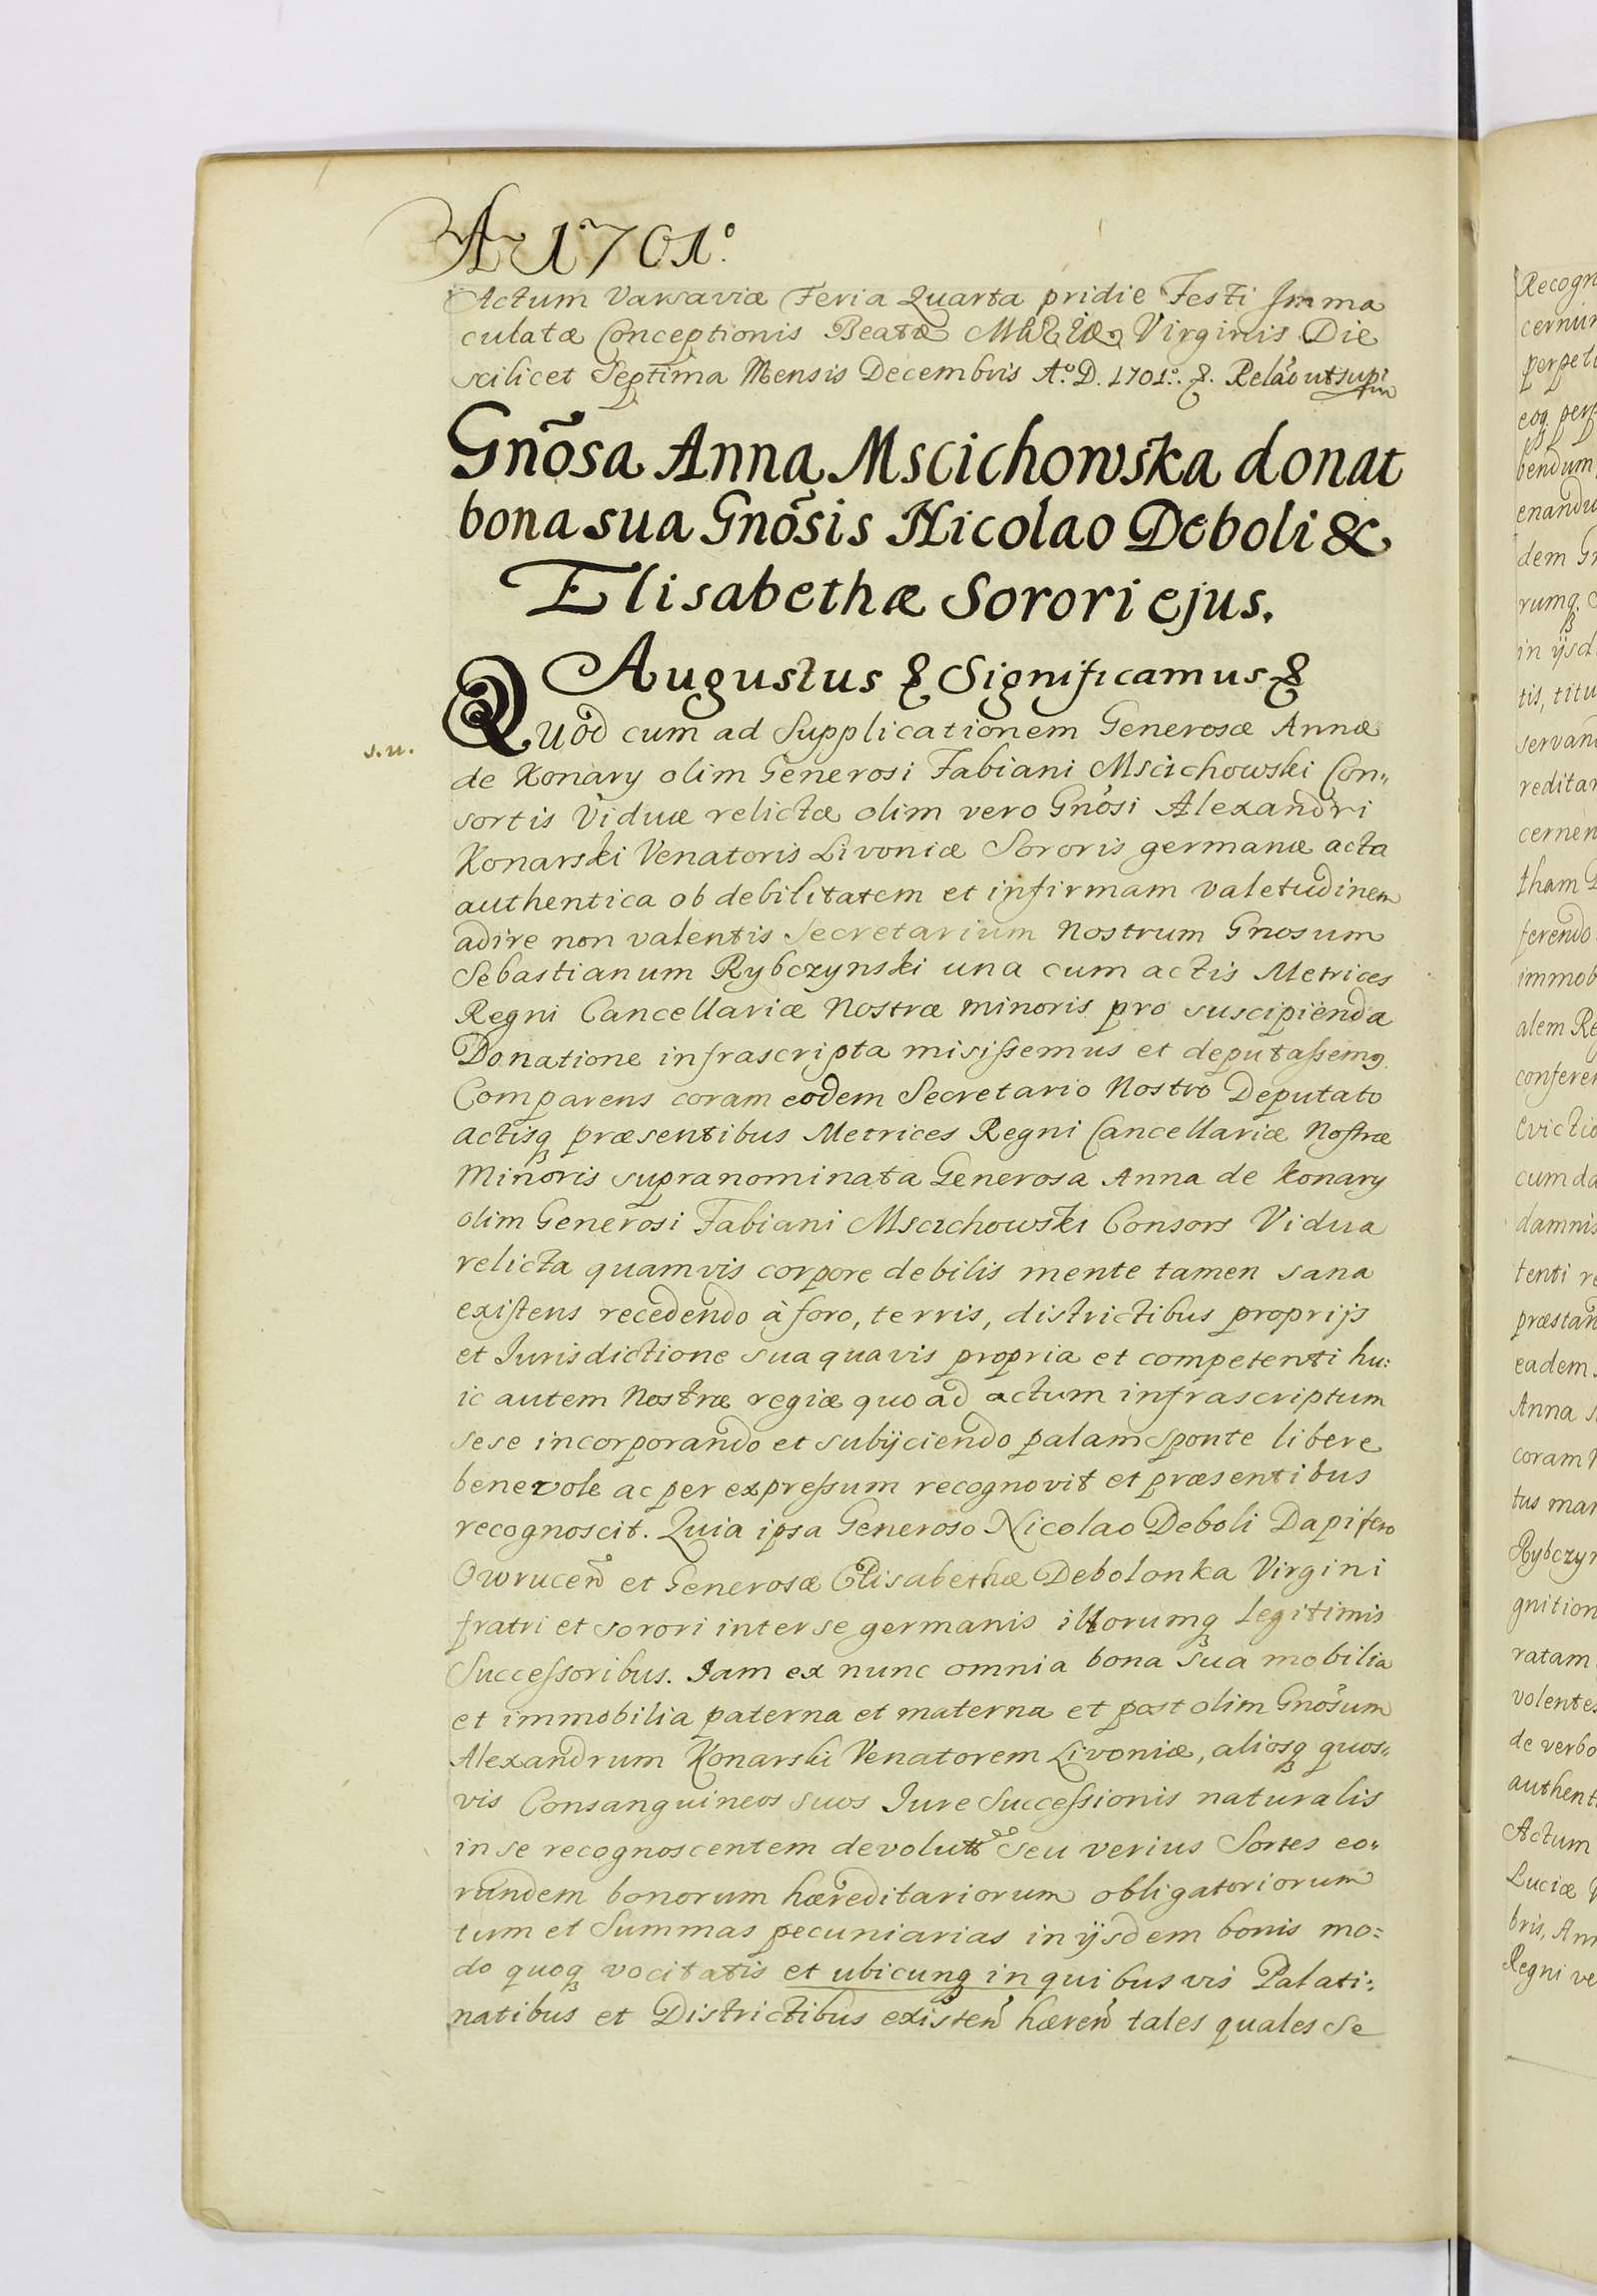 A 1701º.
Actum Varsaviæ Feria Quarta pridie Festi Imma
culatæ Conceptionis Beatæ MARIÆ Virginis Die
scilicet Septima Mensis Decembris Aº. D. 1701º. &. Relão ut supr
Gnõsa Anna Mscichowska donat
bona sua Gnõsis Nicolao Deboli &
Elisabethæ Sorori ejus.
Augustus & Significamus &
Quod cum ad Supplicationem Generosæ Annæ
s.u.
de Konary olim Generosi Fabiani Mscichowski Con„
sortis Viduæ relictæ olim vero Gnõsi Alexandri
Konarski Venatoris Livoniæ Sororis germanæ acta
authentica ob debilitatem et infirmam valetudinem
adire non valentis Secretarium Nostrum Gnosum
Sebastianum Rybczynski una cum actis Metrices
Regni Cancellariæ Nostræ minoris pro suscipienda
Donatione infrascripta misissemus et deputassemq
Comparens coram eodem Secretario Nostro Deputato
actisq præsentibus Metrices Regni Cancellariæ Nostræ
Minoris supranominata Generosa Anna de Konary
olim Generosi Fabiani Mscichowski Consors Vidua
relicta quamvis corpore debilis mente tamen sana
existens recedendo à foro, terris, districtibus proprijs
et Jurisdictione sua quavis propria et competenti hu:
ic autem Nostræ regiæ quo ad actum infrascriptum
sese incorporando et subijciendo palam sponte libere
benevole ac per expressum recognovit et præsentibus
recognoscit. Quia ipsa Generoso Nicolao Deboli Dapifero
Owruceñ et Generosæ Elisabethæ Debolonka Virgini
fratri et sorori inter se germanis illorumq Legitimis
Successoribus. Jam ex nunc omnia bona sua mobilia
et immobilia paterna et materna et post olim Gnõsum
Alexandrum Konarski Venatorem Livoniæ, aliosq quos„
vis Consanguineos suos Jure Successionis naturalis
in se recognoscentem devoluta seu verius Sortes eo„
rundem bonorum hæreditariorum obligatoriorum
tum et Summas pecuniarias in ijsdem bonis mo:
do quoq vocitatis et ubicunq in quibusvis Palati:
natibus et Districtibus existeñ hæreñ tales quales se
Recogn
cernun
perpetu
eoq perp
bendum
enandu
dem G
rumq
in ijsd
tis, titu
servan
reditar
cernen
tham D
ferendo
immob
alem Re
conferen
Evictio
cum da
damnis
tenti re
præstan
eadem
Anna
coram N
tus man
Rybczyn
gnition
ratam
volentes
de verbo
authent
Actum
Luciæ
bris, Ann
Regni ve